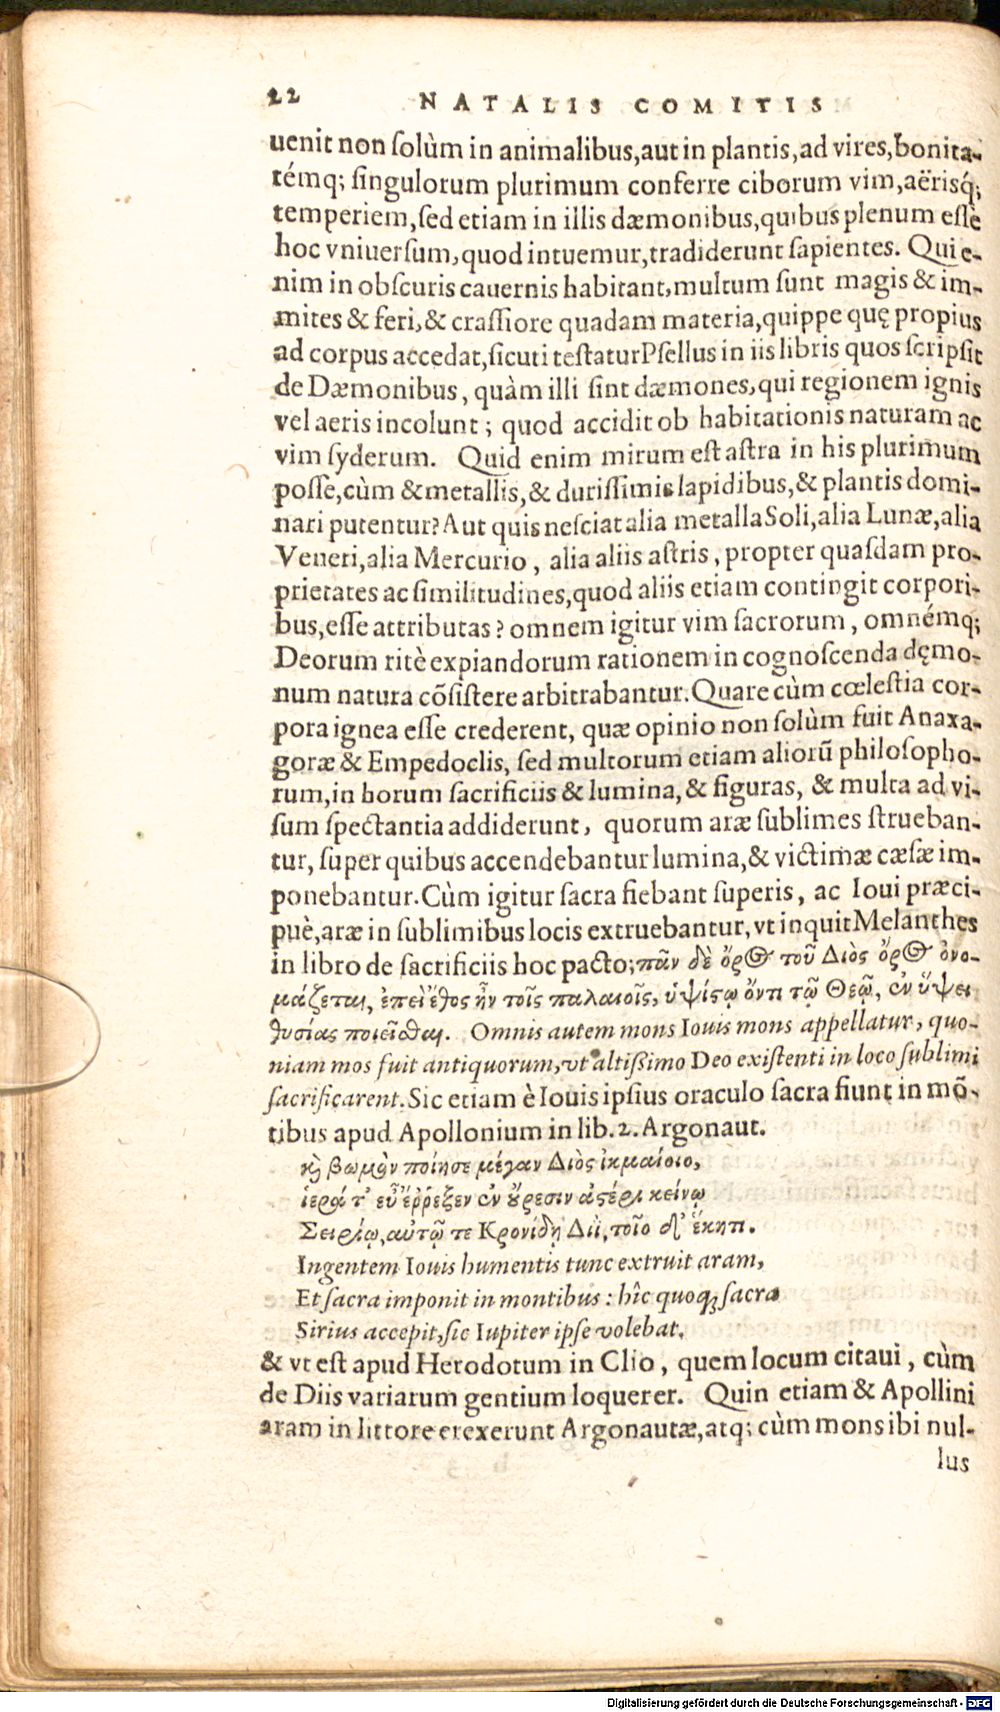 22 NATALIS COMITIS
uenit non ſolùm in animalibus,aut in plantis,ad vires,bonita-
témq; ſingulorum plurimum conferre ciborum vim,aërisq́;
temperiem,ſed etiam in illis dæmonibus,quibus plenum eſſe
hoc vniuerſum,quod intuemur,tradiderunt ſapientes. Qui e-
nim in obſcuris cauernis habitant,multum ſunt magis & im-
mites & feri,& craſſiore quadam materia,quippe quę propius
ad corpus accedat,ſicuti teſtatur Pſellus in iis libris quos ſcripſit
de Dæmonibus, quàm illi ſint dæmones,qui regionem ignis
vel aeris incolunt; quod accidit ob habitationis naturam ac
vim ſyderum. Quid enim mirum eſt aſtra in his plurimum
poſſe,cùm & metallis,& duriſſimis lapidibus,& plantis domi-
nari putentur? Aut quis neſciat alia metalla Soli,alia Lunæ,alia
Veneri,alia Mercurio, alia aliis aſtris, propter quaſdam pro-
prietates ac ſimilitudines,quod aliis etiam contingit corpori-
bus,eſſe attributas? omnem igitur vim ſacrorum, omnémq;
Deorum ritè expiandorum rationem in cognoſcenda dęmo-
num natura cõſiſtere arbitrabantur. Quare cùm cœleſtia cor-
pora ignea eſſe crederent, quæ opinio non ſolùm fuit Anaxa-
goræ & Empedoclis, ſed multorum etiam aliorũ philoſopho-
rum,in horum ſacrificiis & lumina,& figuras, & multa ad vi-
ſum ſpectantia addiderunt, quorum aræ ſublimes ſtrueban-
tur, ſuper quibus accendebantur lumina,& victimæ cæſæ im-
ponebantur. Cùm igitur ſacra fiebant ſuperis, ac Ioui præci-
puè,aræ in ſublimibus locis extruebantur, vt inquit Melanthes
in libro de ſacrificiis hoc pacto; πᾶν δὲ ὄρος τοῦ Διὸς ὄρος ὀνο-
μάζεται, ἐπεὶ ἔθος ἦν τοῖς παλαιοῖς, ὑψίστῳ ὄντι τῷ Θεῷ, ἐν ὕψει
θυσίας ποιεῖσθαι. Omnis autem mons Iouis mons appellatur, quo-
niam mos fuit antiquorum, vt altiſſimo Deo exiſtenti in loco ſublimi
ſacrificarent. Sic etiam è Iouis ipſius oraculo ſacra fiunt in mõ-
tibus apud Apollonium in lib.2. Argonaut.
καὶ βωμὸν ποίησε μέγαν Διὸς ἰκμαίοιο,
ἱερά τ' εὖ ἔρρεξεν ἐν οὔρεσιν ἀστέρι κείνῳ
Σειρίῳ,αὐτῷ τε Κρονίδῃ Διὶ,τοῖο δ' ἕκητι.
Ingentem Iouis humentis tunc extruit aram,
Et ſacra imponit in montibus: hîc quoq; ſacra
Sirius accepit,ſic Iupiter ipſe volebat.
& vt eſt apud Herodotum in Clio, quem locum citaui, cùm
de Diis variarum gentium loquerer. Quin etiam & Apollini
aram in littore erexerunt Argonautæ,atq; cùm mons ibi nul-
lus
Digitalisierung gefördert durch die Deutsche Forschungsgemeinschaft - DFG